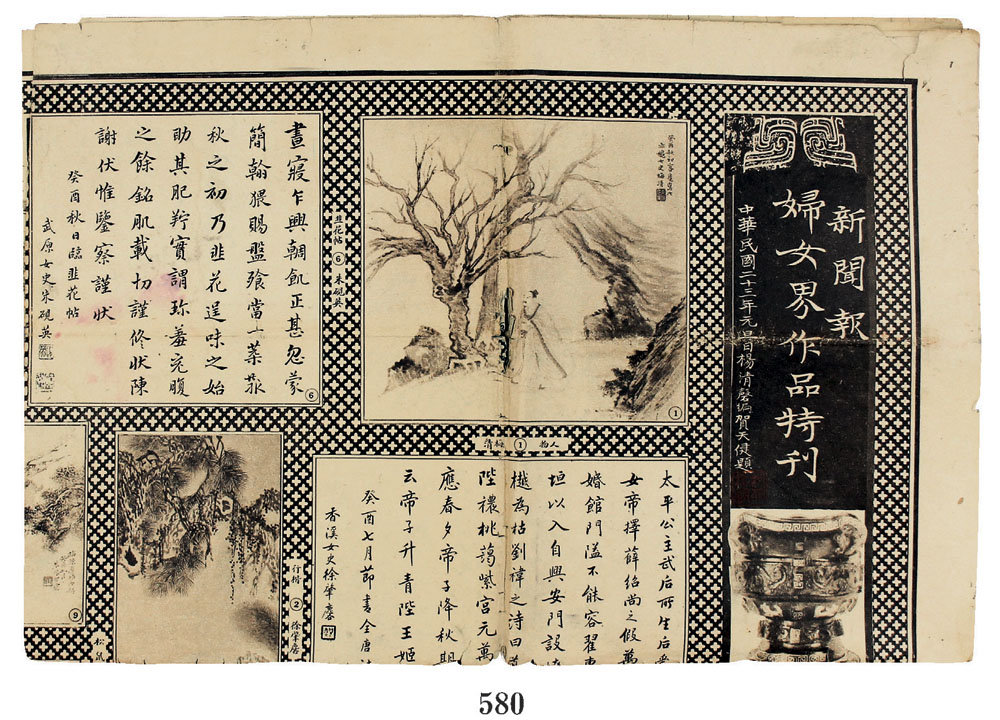 新聞報
婦女界作品特刊
中華民國二十三年元旦日楊清磬編賀天健題
①
人物 ① 清梅
韭花帖 ⑥ 朱硯英
晝寢乍興輖飢正甚忽蒙
簡翰猥賜盤飧當一葉報
秋之初乃韭花逞味之始
助其肥羜實謂珍羞充腹
之餘銘肌載切謹修狀陳
謝伏惟鑒察謹狀
癸酉秋日臨韭花帖
武原女史朱硯英
⑥
太平公主武后所生后
女帝擇薛紹尚之假萬
婚館門隘不能容翟車
垣以入自興安門設
樾為枯劉禕之詩曰
陛穠桃藹紫宮元萬
應春夕帝子降秋期
云帝子升青陛王姬
癸酉七月節書全唐詩
香溪女史徐肇
行楷 ② 徐肇
⑨
松鼠
580